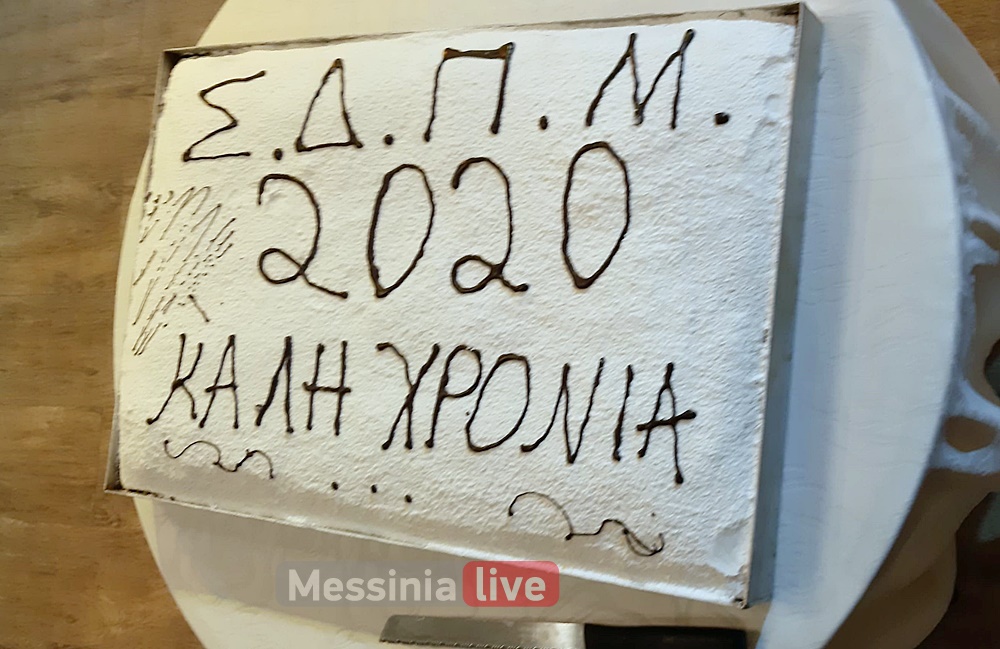 Σ.Δ.Π.Μ.
2020
ΚΑΛΗ ΧΡΟΝΙΑ
...
Messinia live